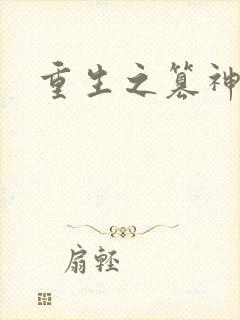 重生之篡神
扇輕